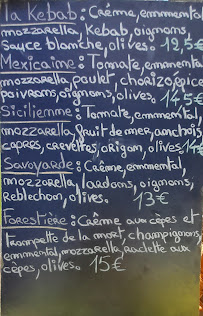 la Kebab : Crème, emmental
mozzarella, Kebab, oignons,
sauce blanche, olives. 12,5€
Mexicaine : Tomate, emmental
mozzarella, poulet, chorizo, épice
poivrons, oignons, olives. 14,5€
Sicilienne : Tomate, emmental,
mozzarella, fruit de mer, anchois,
capres, crevettes, origan, olives. 14€
Savoyarde : Crème, emmental,
mozzarella, lardons, oignons,
Reblochon, olives. 13€
Forestière : Crème aux cèpes et
Trompette de la mort, champignons,
emmental, mozzarella, raclette aux
cèpes, olives. 15€